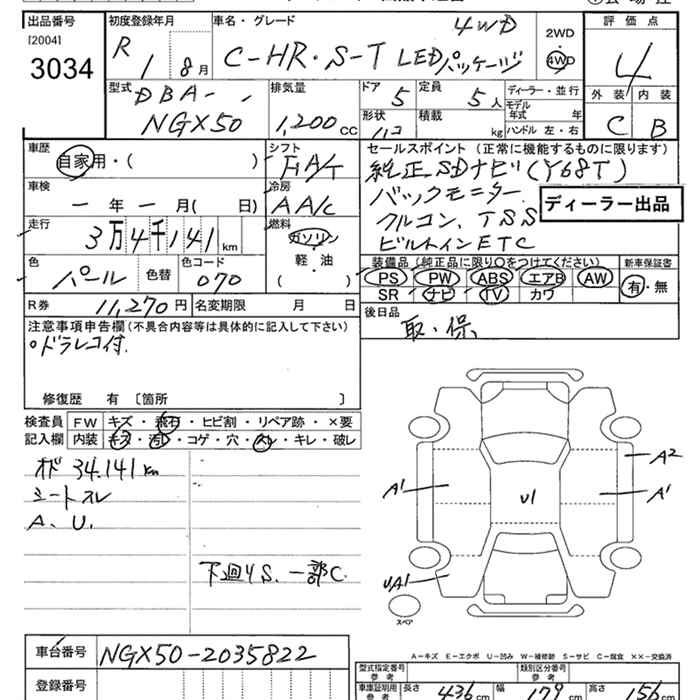 出品番号 初度登録年月 車名・グレード 評価点
[2004] 3034
R 1 8月
C-HR・S-T LEDパッケージ 4WD
2WD・4WD
4
外装 内装
C B
型式 DBA-
NGX50
排気量 1,200cc
ドア 5 定員 5人
ディーラー・並行
モデル年式 年
形状 積載 kg ハンドル 左・右
車歴 自家用・( )
シフト FA/T
車検 ー年ー月( 日)
冷房 AA/C
走行 3万4千141km
燃料 ガソリン
軽・油
( )
色 パール 色替 色コード 070
R券 11,270円 名変期限 月 日
セールスポイント (正常に機能するものに限ります)
純正SDナビ(Y68T)
バックモニター
クルコン、TSS
ビルトインETC
ディーラー出品
装備品(純正品に限り○をつけてください) 新車保証書
PS PW ABS エアB AW 有・無
SR ナビ TV カワ
後日品 取・保
注意事項申告欄(不具合内容等は具体的に記入して下さい)
○ドラレコ付.
修復歴 有 〔箇所 〕
検査員 FW キズ・飛石・ヒビ割・リペア跡・×要
記入欄 内装 キズ・汚レ・コゲ・穴・スレ・キレ・破レ
オド 34.141km
シートスレ
A、U.
下廻りS.一部C.
A2
A1 U1 A1
UA1
スペア
A-キズ E-エクボ U-凹み W-補修跡 S-サビ C-腐食 ××-交換済
車台番号 NGX50-2035822
登録番号
型式指定番号 参考 類別区分番号 参考
車庫証明用 参考 長さ 436cm 幅 179cm 高さ 156cm